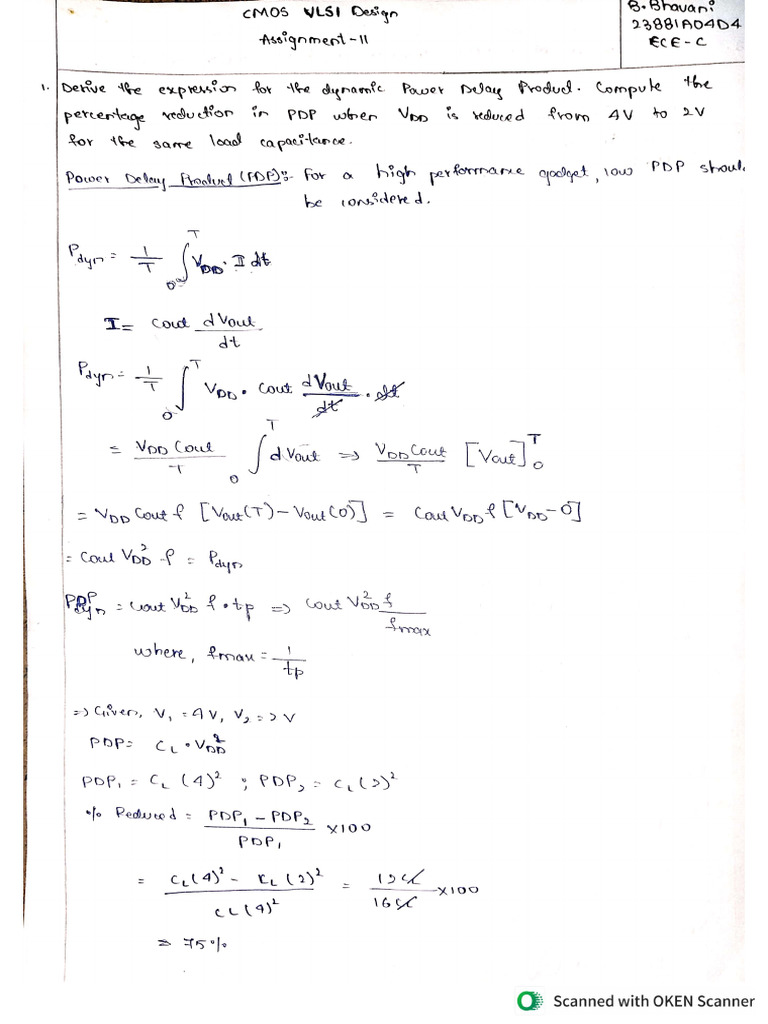 CMOS VLSI Design
Assignment-II
B. Bhavani
23881A04D4
ECE-C
1. Derive the expression for the dynamic Power Delay Product. Compute the
percentage reduction in PDP when VDD is reduced from 4V to 2V
for the same load capacitance.
Power Delay Product (PDP):- For a high performance gadget, low PDP should
be considered.
Pdyn = 1/T ∫₀ᵀ VDD · I dt
I = Cout dVout/dt
Pdyn = 1/T ∫₀ᵀ VDD · Cout dVout/dt · dt
= VDD Cout/T ₀∫ᵀ dVout ⇒ VDD Cout/T [Vout]₀ᵀ
= VDD Cout f [Vout(T) - Vout(0)] = Cout VDD f [VDD - 0]
= Cout VDD² f = Pdyn
PDPdyn = Cout VDD² f · tp ⇒ Cout VDD² f/fmax
where, fmax = 1/tp
⇒ Given, V₁ = 4V, V₂ = 2V
PDP = CL · VDD²
PDP₁ = CL (4)² ; PDP₂ = CL (2)²
% Reduced = PDP₁ - PDP₂/PDP₁ ×100
= CL(4)² - CL(2)²/CL(4)² = 12CL/16CL ×100
⇒ 75%
Scanned with OKEN Scanner